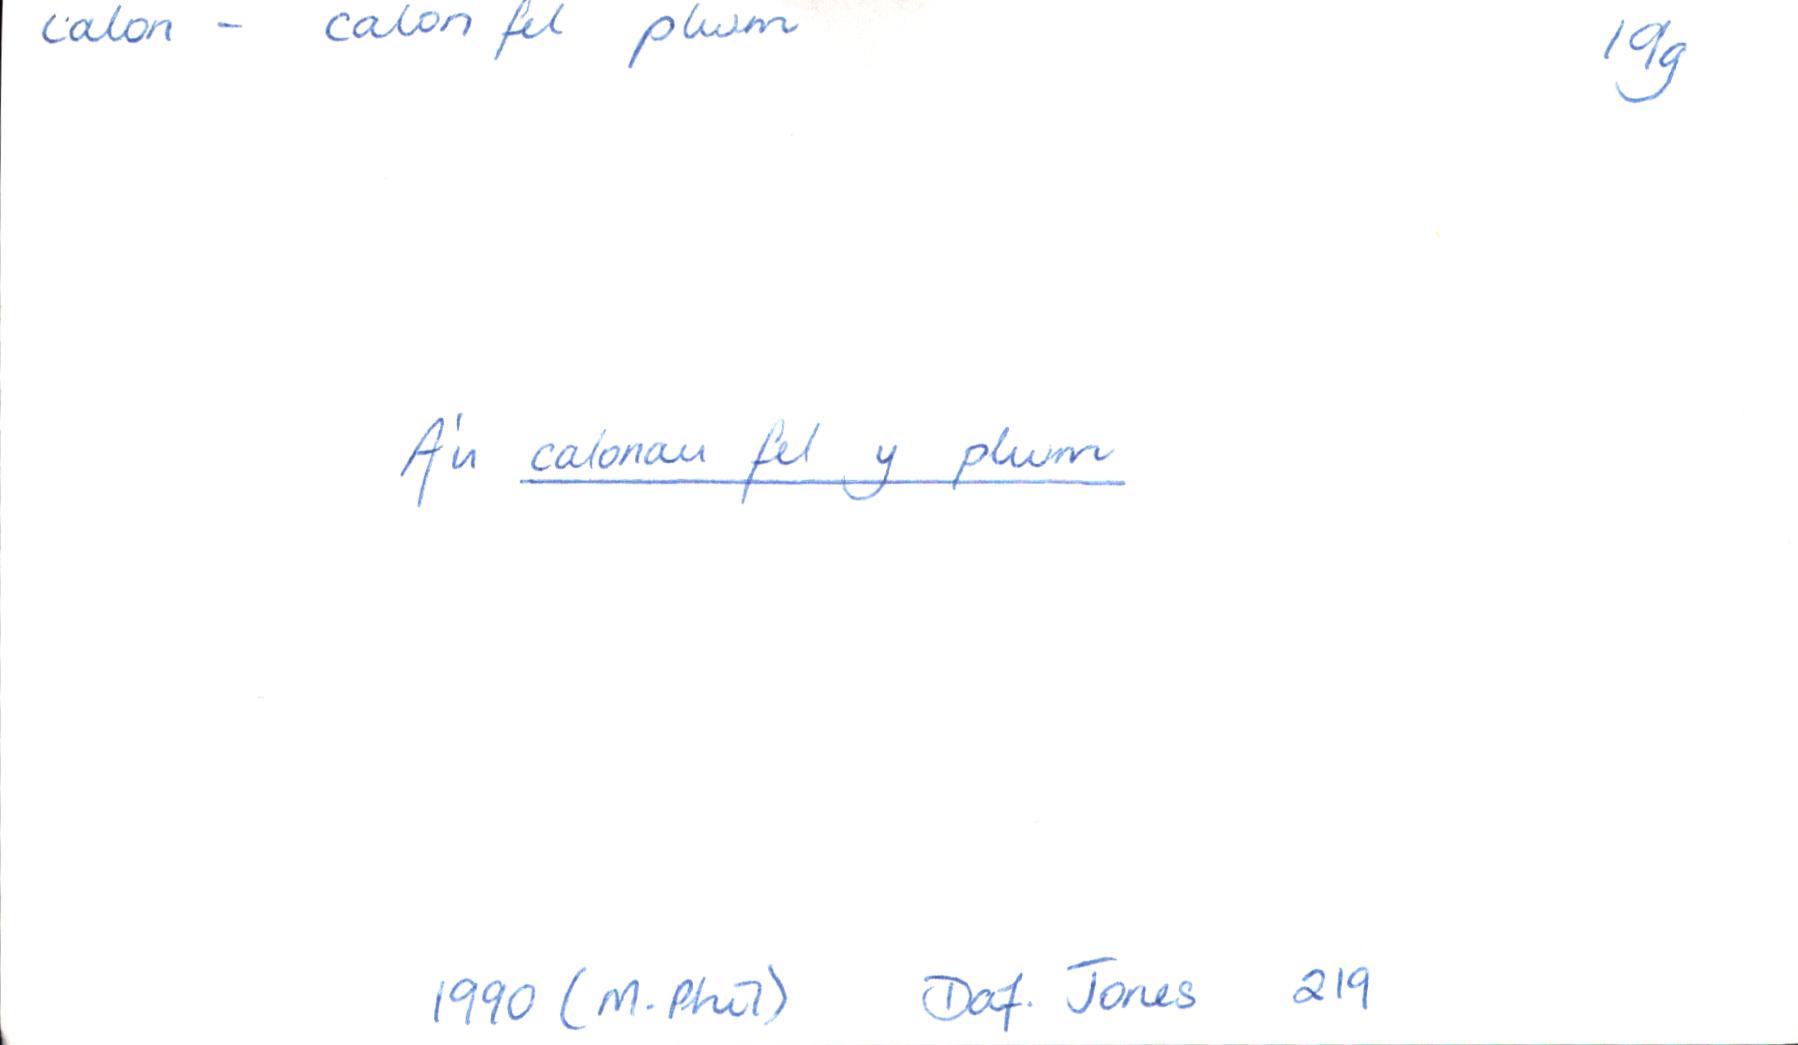 calon - calon fel plwm 19g
A'u calonau fel y plwm
1990 (M.Phil) Daf. Jones 219